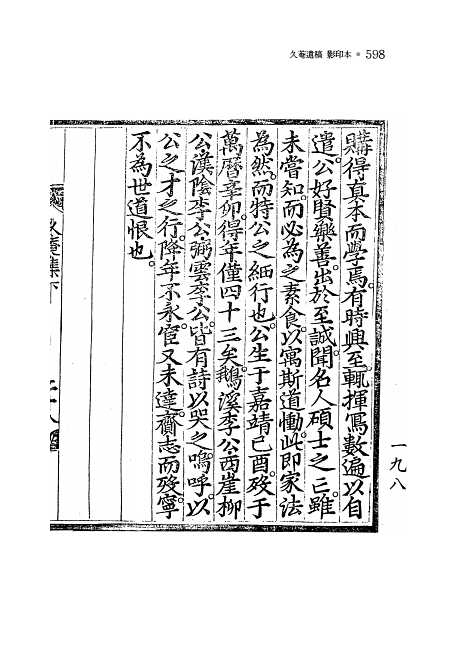 久菴遺稿 影印本 • 598
購得真本而學焉有時興至輒揮寫數遍以自
遣公好賢樂善出於至誠聞名人碩士之亡雖
未嘗知而必為之素食以寓斯道慟此即家法
為然而特公之細行也公生于嘉靖己酉歿于
萬曆辛卯得年僅四十三矣鵝溪李公西崖柳
公漢陰李公弼雲李公皆有詩以哭之嗚呼以
公之才之行降年不永宦又未達齎志而歿寧
不為世道恨也
久菴集下
一九八